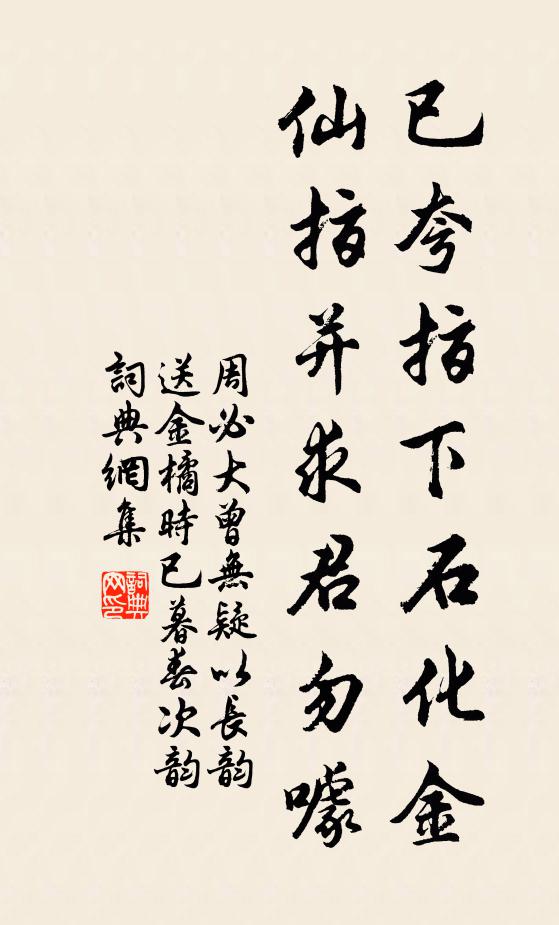 已夸指下石化金
仙指并求君勿噱
周必大曾無疑以長韵
送金橘時已暮春次韵
詞典網集
詞典
网印